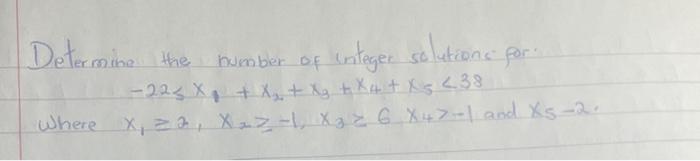 Determine the number of integer solutions for:
-22≤ x₁ + x₂ + x₃ + x₄ + x₅ <38
Where x₁ ≥ 2, x₂ ≥ -1, x₃ ≥ 6 x₄ > -1 and x₅ -2.